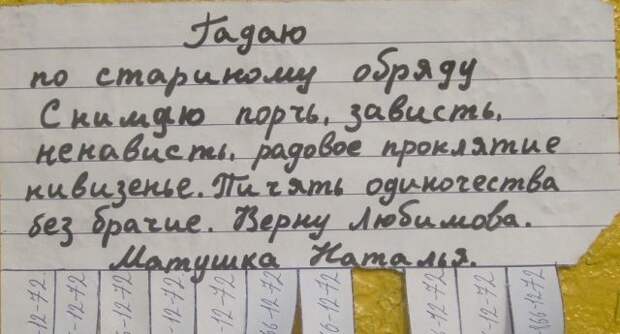 Гадаю
по стариному обряду
Снимаю порчь, зависть,
ненависть, радовое проклятие
нивизенье. Пичять одиночества
без брачие. Верну любимова.
Матушка Наталья.
-12-72 6-12-72 -12-72 -12-72 -12-72 66-12-72 6-12-72 -12-72 6-12-72 666-12-72